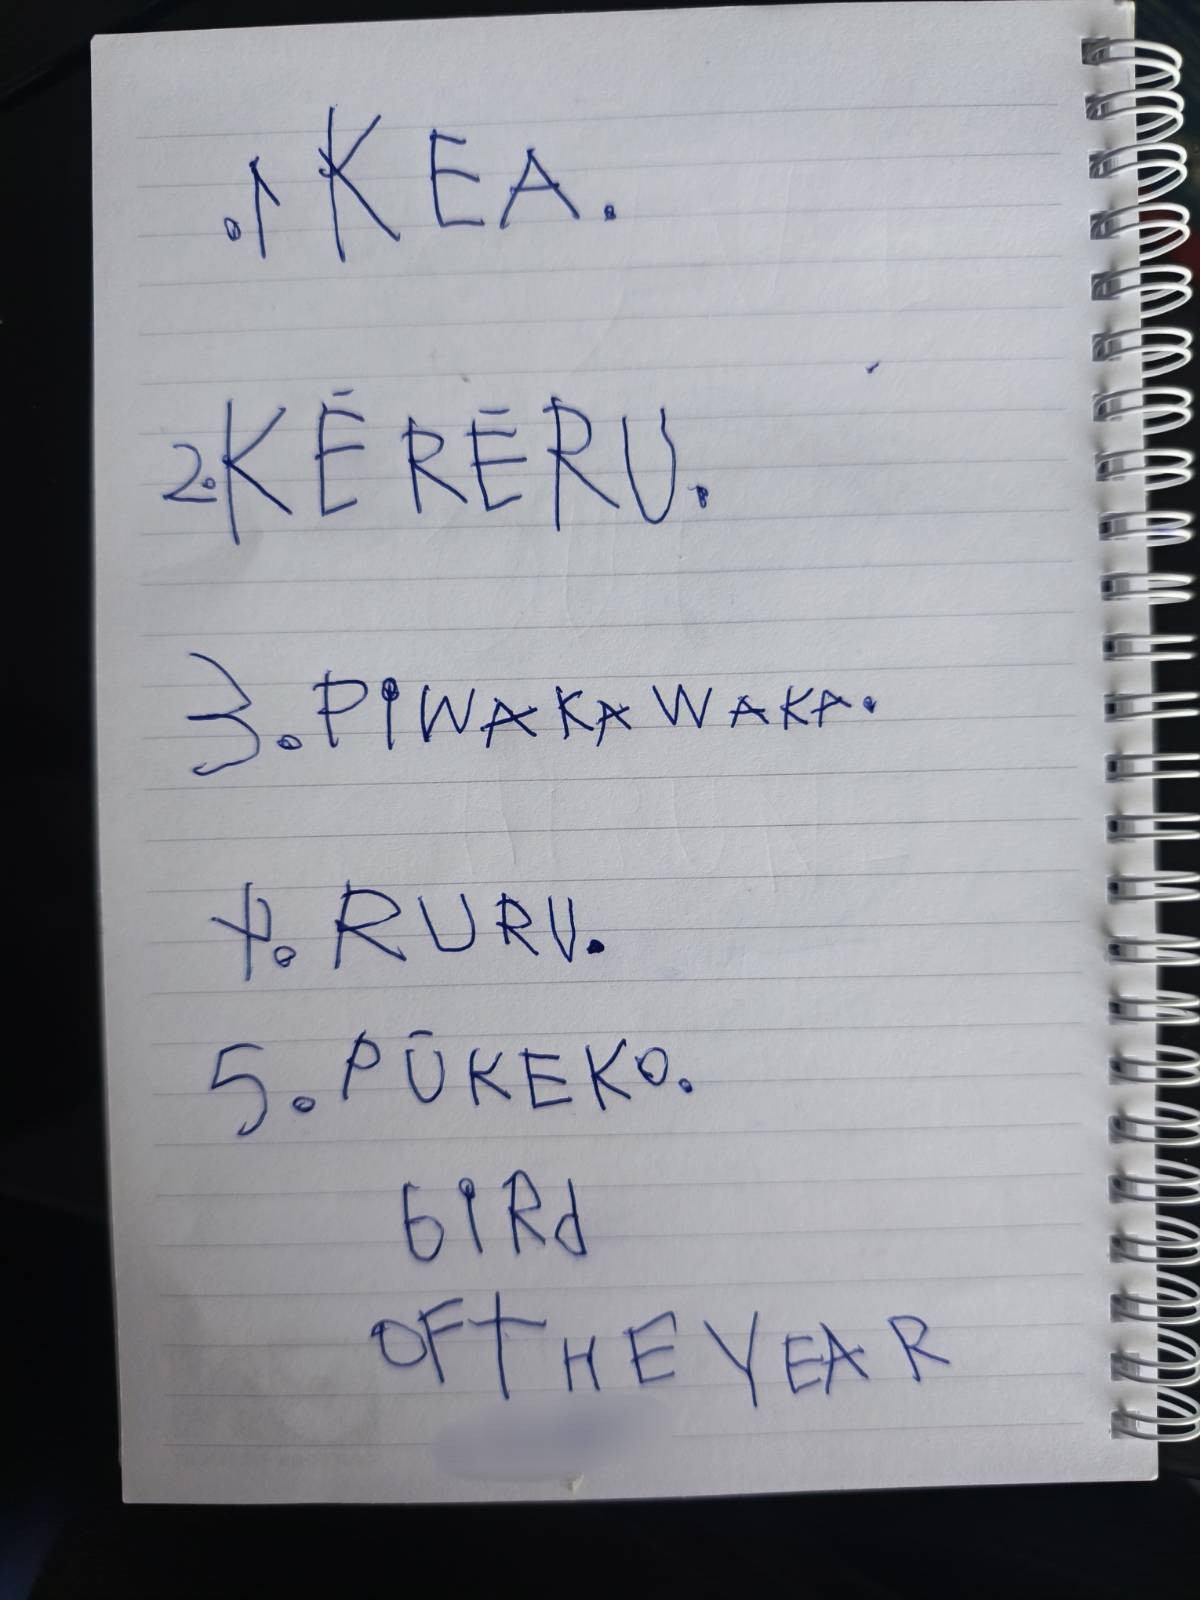 .1 KEA.
2. KĒRĒRU.
3. PIWAKAWAKA.
4. RURU.
5. PŪKEKO.
biRd
OF THE YEAR